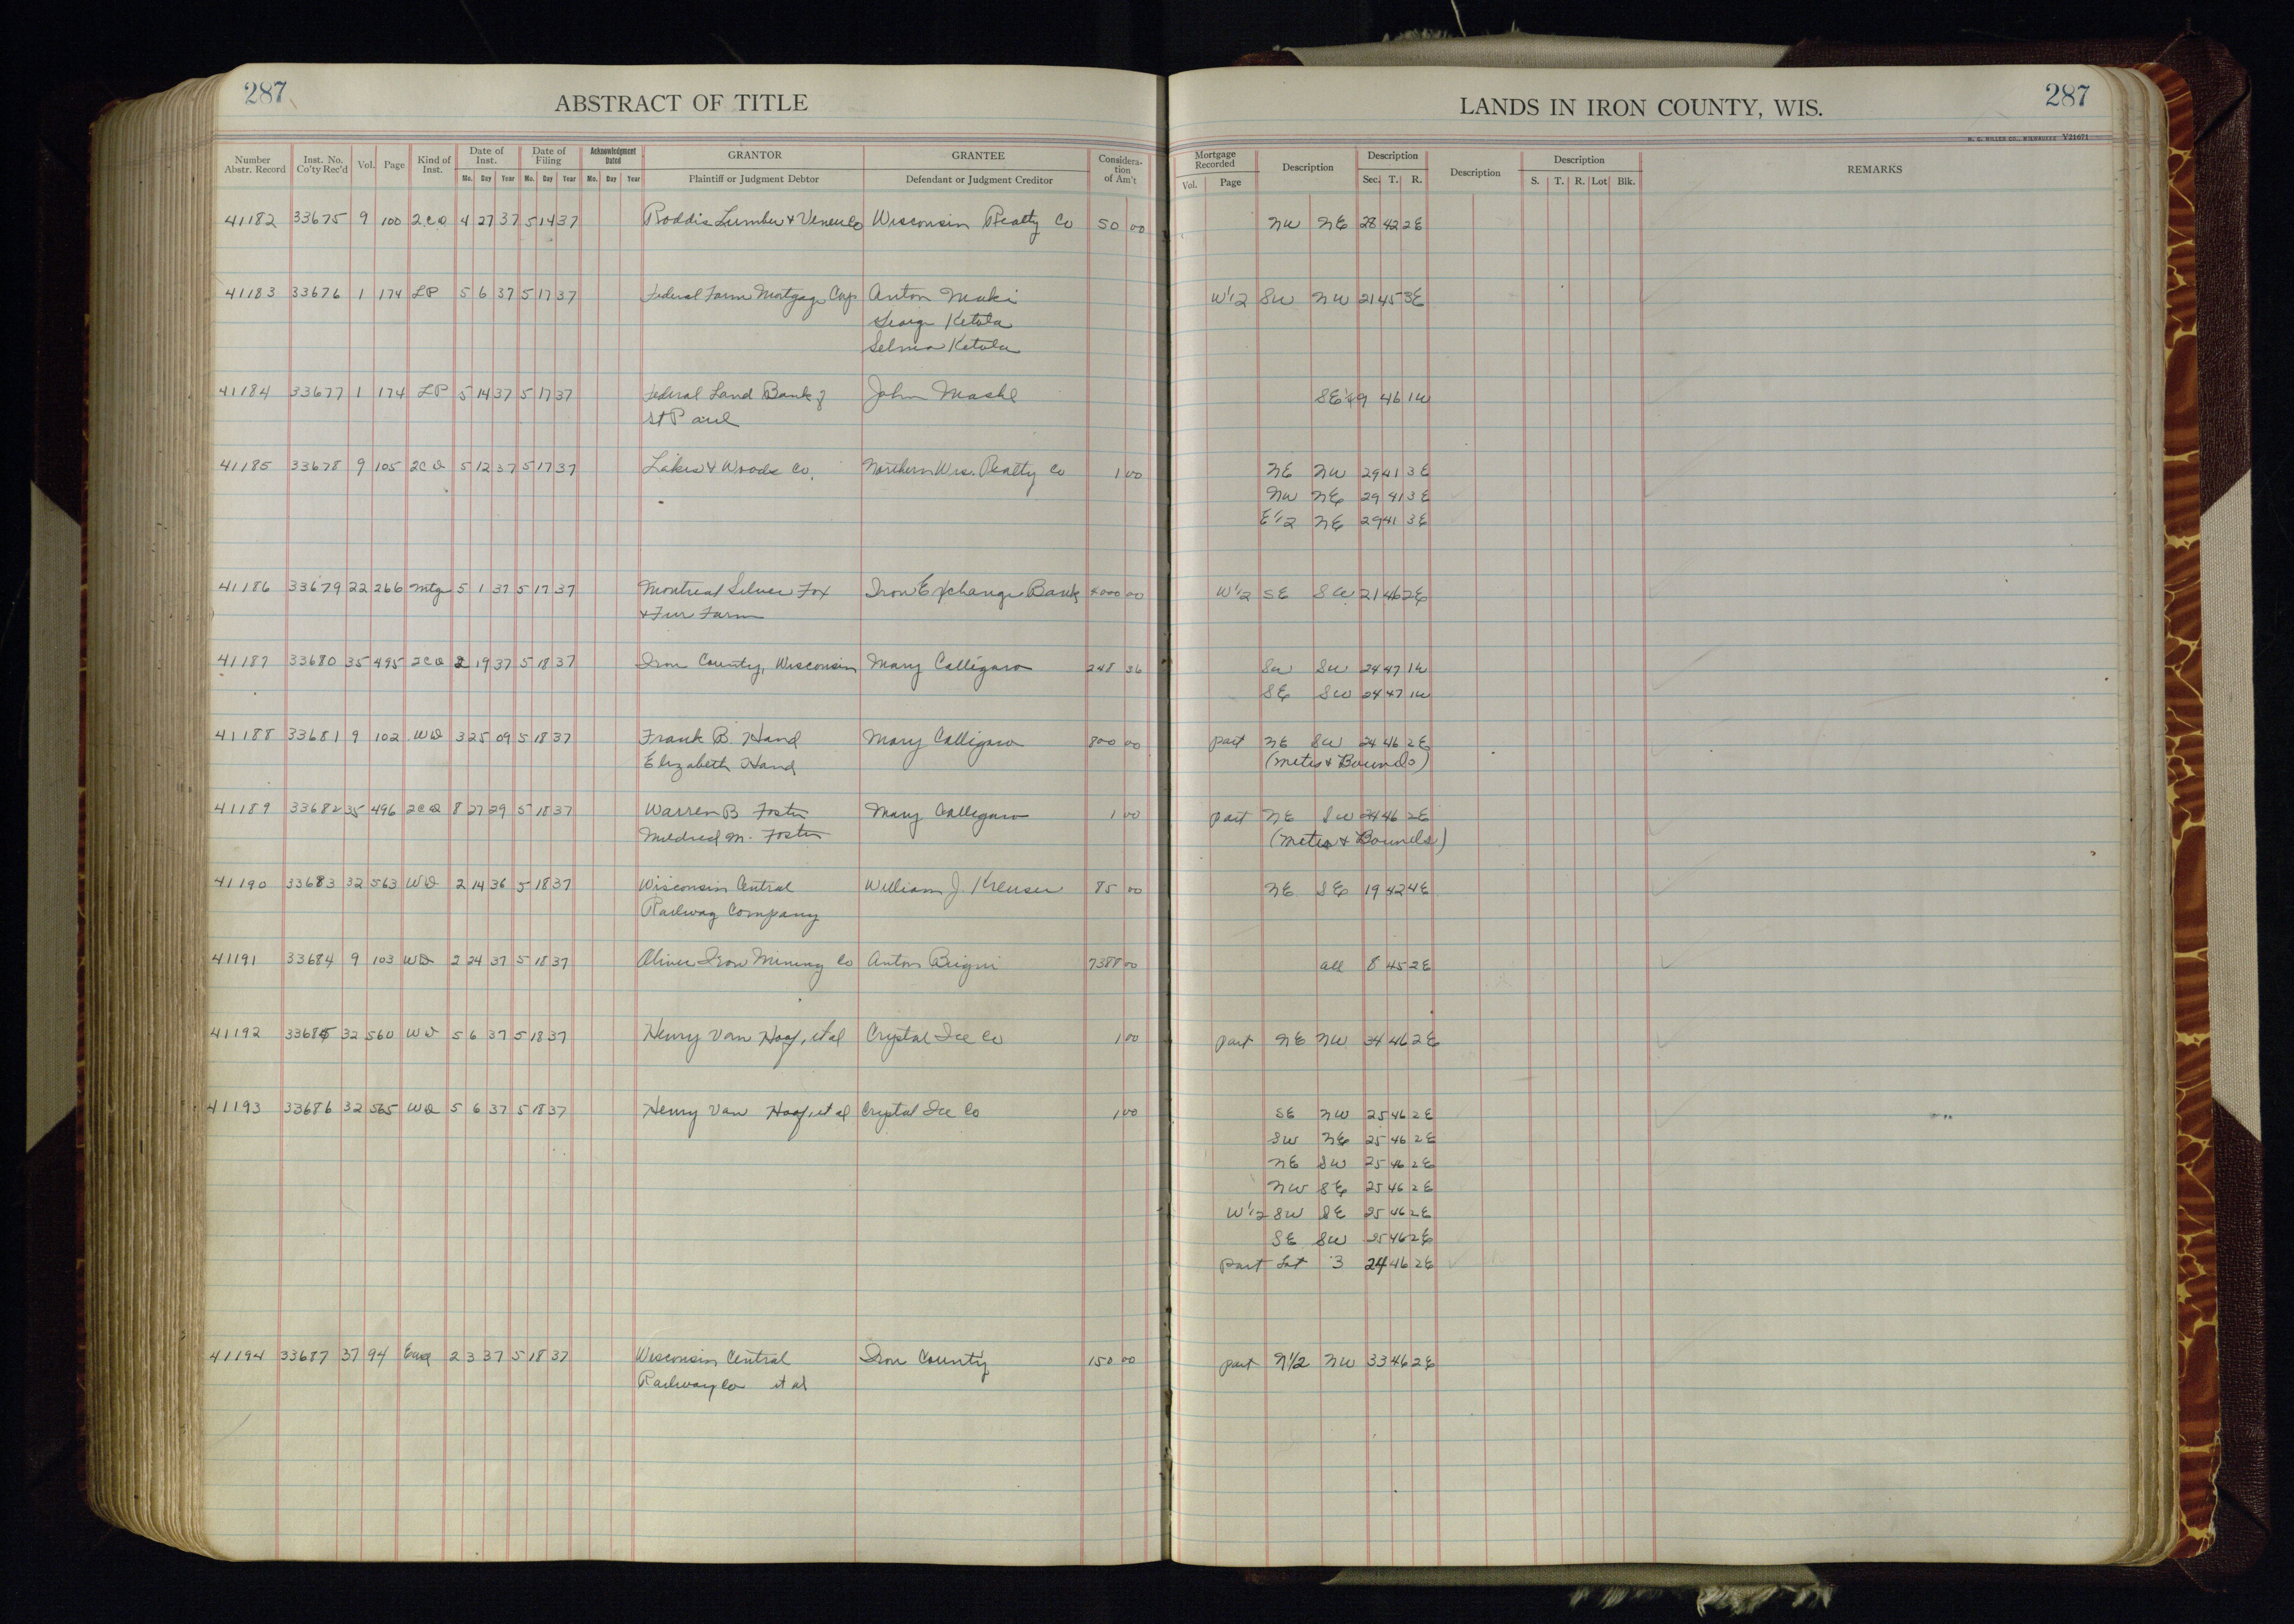 287
ABSTRACT OF TITLE
LANDS IN IRON COUNTY, WIS.
287
V21671
Number Abstr. Record | Inst. No. Co'ty Rec'd | Vol. | Page | Kind of Inst. | Date of Inst. Mo. Day Year | Date of Filing Mo. Day Year | Acknowledgment Dated Mo. Day Year | GRANTOR Plaintiff or Judgment Debtor | GRANTEE Defendant or Judgment Creditor | Consideration of Am't | Mortgage Recorded Vol. Page | Description | Description Sec. T. R. | Description | Description S. T. R. Lot Blk. | REMARKS
41182 33675 9 100 2CD 4 27 37 5 14 37 Roddis Lumber & Veneer Co Wisconsin Realty Co 50 00 NW NE 28 42 2E
41183 33676 1 174 LP 5 6 37 5 17 37 Federal Farm Mortgage Corp Anton Maki W1/2 SW NW 21 45 3E
George Ketola
Selma Ketola
41184 33677 1 174 LP 5 14 37 5 17 37 Federal Land Bank of John Mashl SE1/4 9 46 1W
St Paul
41185 33678 9 105 2CD 5 12 37 5 17 37 Lakes & Woods Co. Northern Wis. Realty Co 1 00 NE NW 29 41 3E
NW NE 29 41 3E
E1/2 NE 29 41 3E
41186 33679 22 266 Mtg 5 1 37 5 17 37 Montreal Silver Fox Iron Exchange Bank 4000 00 W1/2 SE SW 21 46 2E
& Fur Farm
41187 33680 35 495 2CD 2 19 37 5 18 37 Iron County, Wisconsin Mary Calligaro 248 36 SW SW 24 47 1W
SE SW 24 47 1W
41188 33681 9 102 WD 3 25 09 5 18 37 Frank B. Hand Mary Calligaro 800 00 part NE SW 24 46 2E
Elizabeth Hand (Metes & Bounds)
41189 33682 35 496 2CD 8 27 29 5 18 37 Warren B Foster Mary Calligaro 1 00 part NE SW 24 46 2E
Mildred M. Foster (Metes & Bounds)
41190 33683 32 563 WD 2 14 36 5 18 37 Wisconsin Central William J. Kreuser 85 00 NE SE 19 42 4E
Railway Company
41191 33684 9 103 WD 2 24 37 5 18 37 Oliver Iron Mining Co Anton 7388 00 all 8 45 2E
41192 33685 32 560 WD 5 6 37 5 18 37 Henry Van Hoof, et al Crystal Ice Co 1 00 part NE NW 34 46 2E
41193 33686 32 565 WD 5 6 37 5 18 37 Henry Van Hoof, et al Crystal Ice Co 1 00 SE NW 25 46 2E
SW NE 25 46 2E
NE SW 25 46 2E
NW SE 25 46 2E
W1/2 SW SE 25 46 2E
SE SW 25 46 2E
part Lot 3 24 46 2E
41194 33687 37 94 2 3 37 5 18 37 Wisconsin Central Iron County 150 00 part N1/2 NW 33 46 2E
Railway Co et al